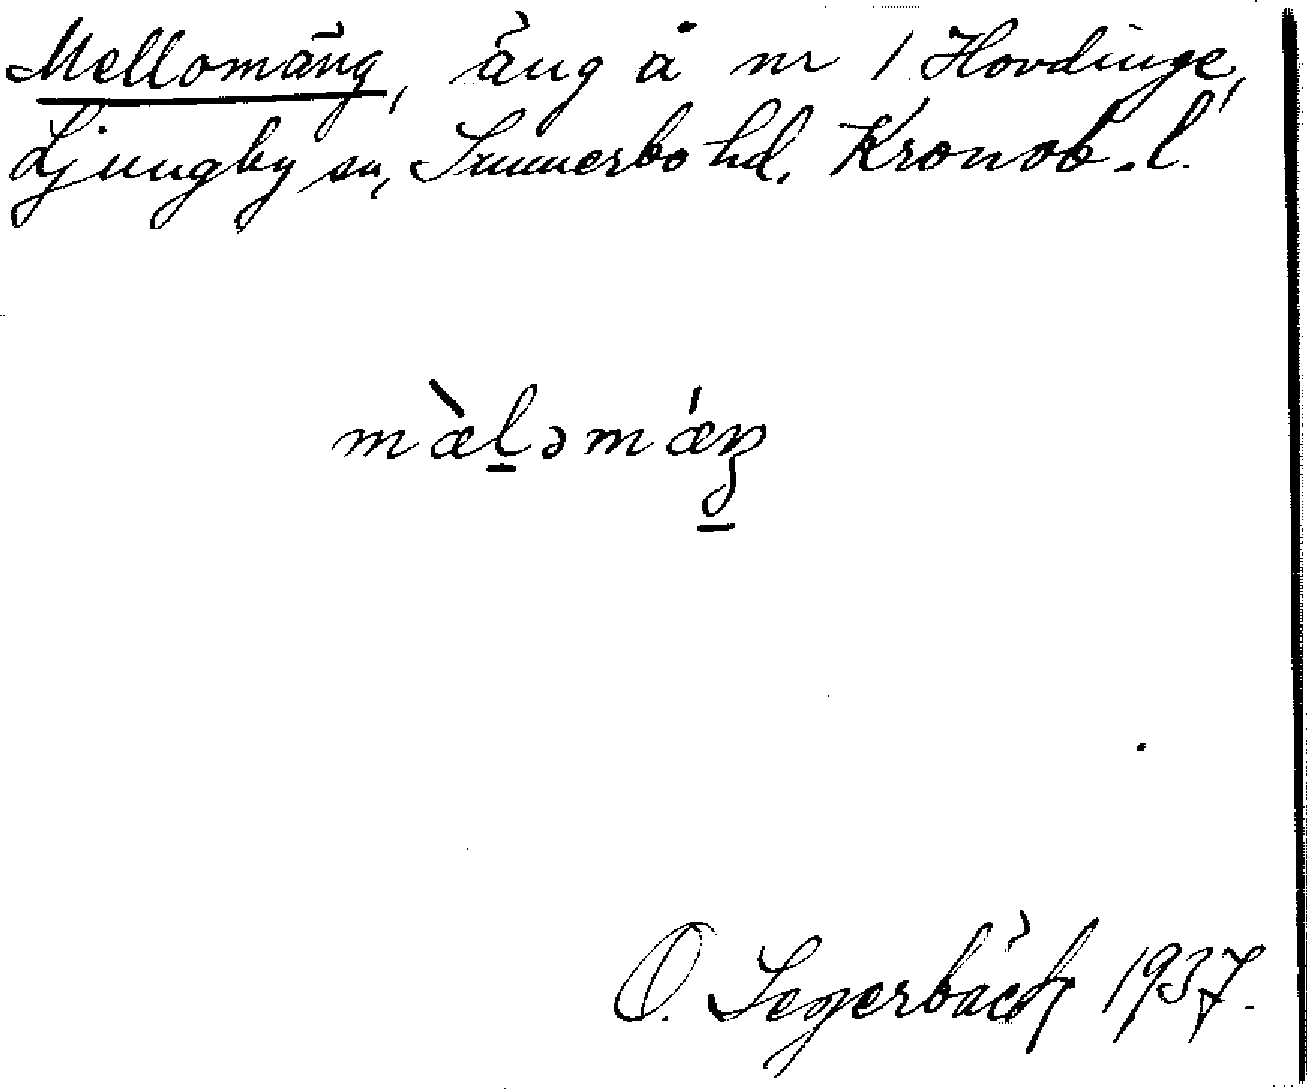 Mellomäng, äng å nr 1 Hovdinge,
Ljungby sn, Sunnerbo hd. Kronob. l.
mæ̀l̲əmǽŋ̲
O. Segerbäck 1937.